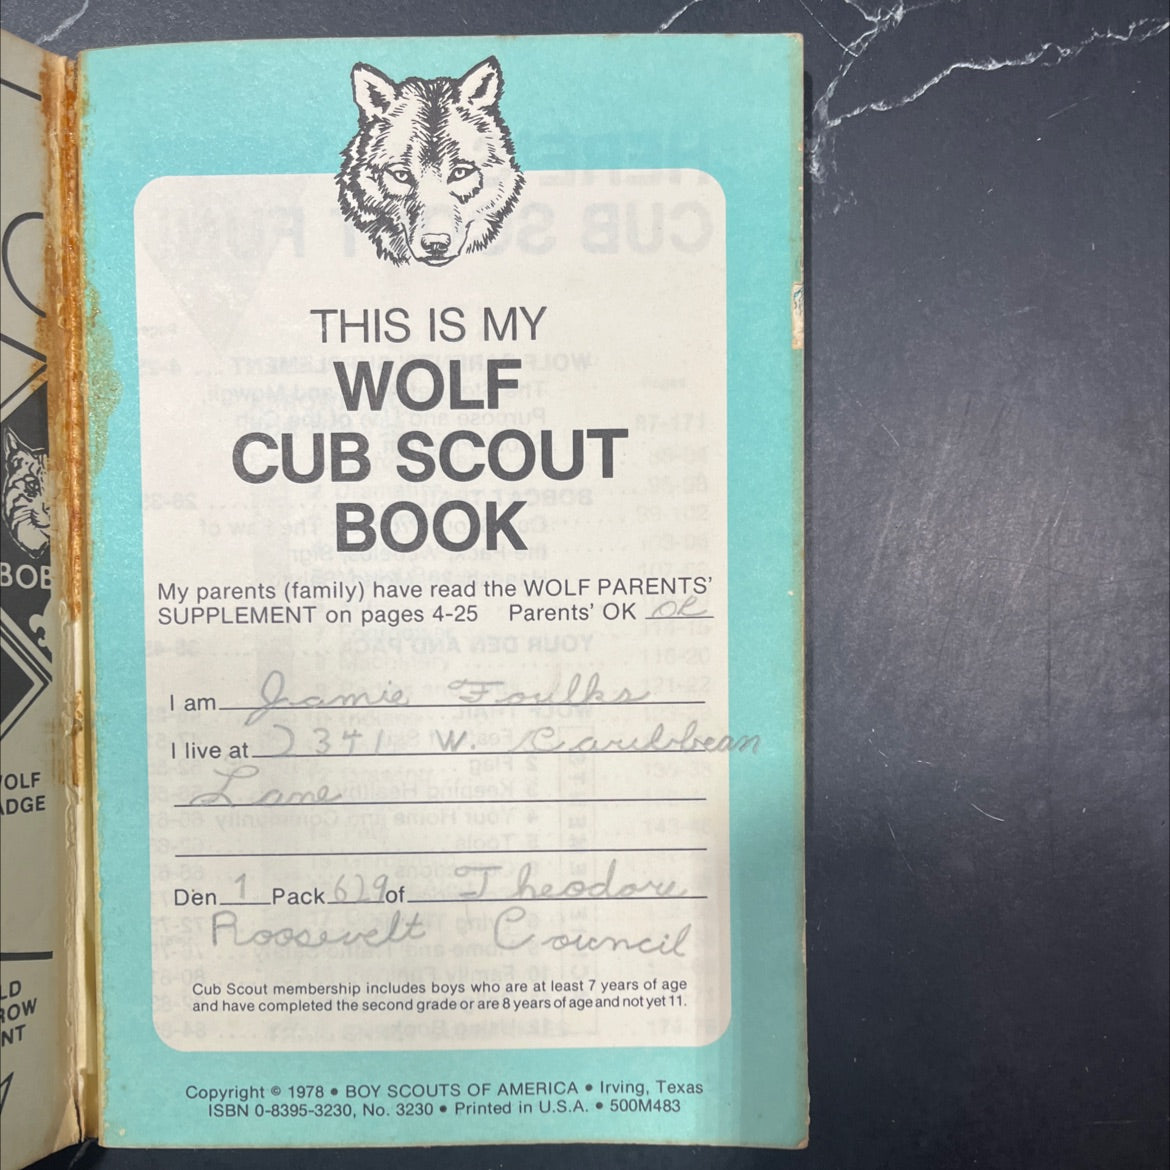 THIS IS MY
WOLF
CUB SCOUT
BOOK
My parents (family) have read the WOLF PARENTS'
SUPPLEMENT on pages 4-25 Parents' OK OK
I am Jamie Foulks
I live at 2341 W. Caribbean
Lane
Den 1 Pack 629 of Theodore
Roosevelt Council
Cub Scout membership includes boys who are at least 7 years of age
and have completed the second grade or are 8 years of age and not yet 11.
Copyright © 1978 • BOY SCOUTS OF AMERICA • Irving, Texas
ISBN 0-8395-3230, No. 3230 • Printed in U.S.A. • 500M483
BOB
OLF
ADGE
LD
ROW
NT